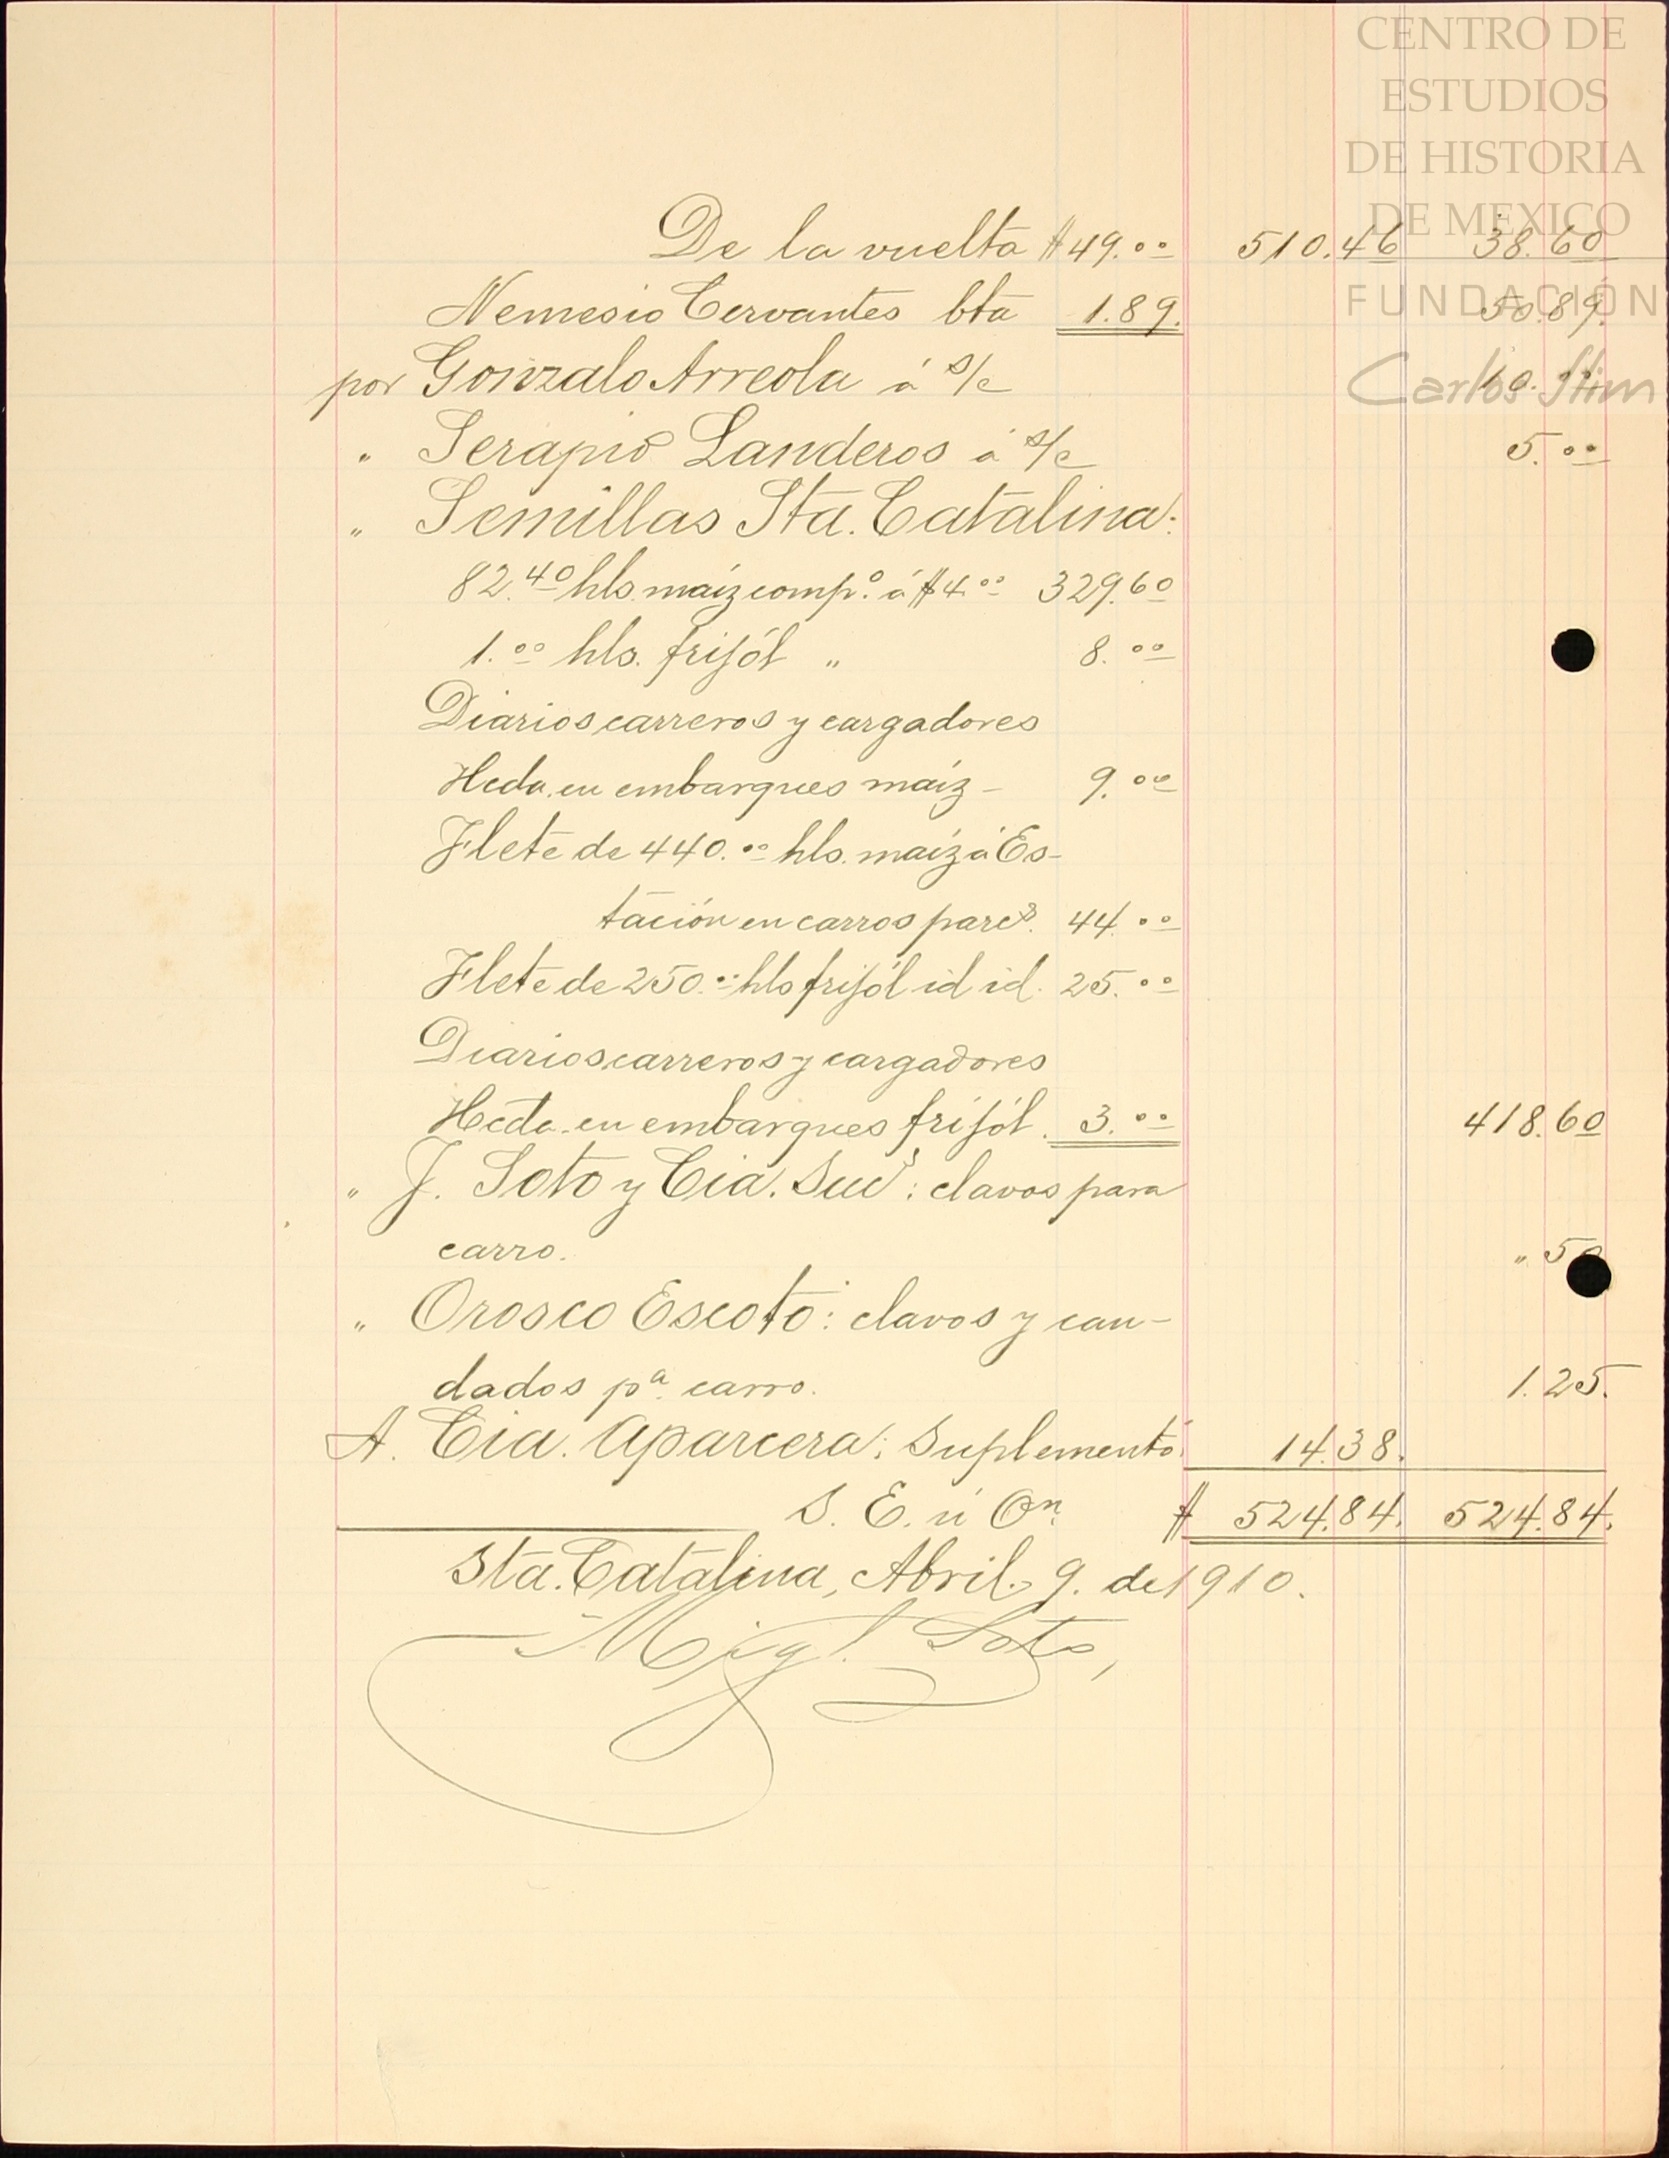 CENTRO DE
ESTUDIOS
DE HISTORIA
DE MEXICO
FUNDACIÓN
Carlos Slim
De la vuelta $49.00 510.46 38.60
Nemesio Cervantes bta 1.89. 50.89.
por Gonzalo Arreola á s/c 10.00
" Serapio Landeros á s/c 5.00
" Semillas Sta. Catalina:
82.40 hls. maíz comp.o á $4.00 329.60
1.00 hls. frijól " 8.00
Diarios carreros y cargadores
Hcda. en embarques maíz - 9.00
Flete de 440.00 hls. maíz á Es-
tación en carros parcs. 44.00
Flete de 250.00 hls frijól id id. 25.00
Diarios carreros y cargadores
Hcda. en embarques frijól. 3.00 418.60
" J. Soto y Cia. Sucs: clavos para
carro. " 50
" Orosco Escoto: clavos y can-
dados pa. carro. 1.25.
A. Cia. Aparcera: Suplemento. 14.38.
S. E. ú On. $ 524.84. 524.84.
Sta. Catalina, Abril 9. de 1910.
Migl. Soto,